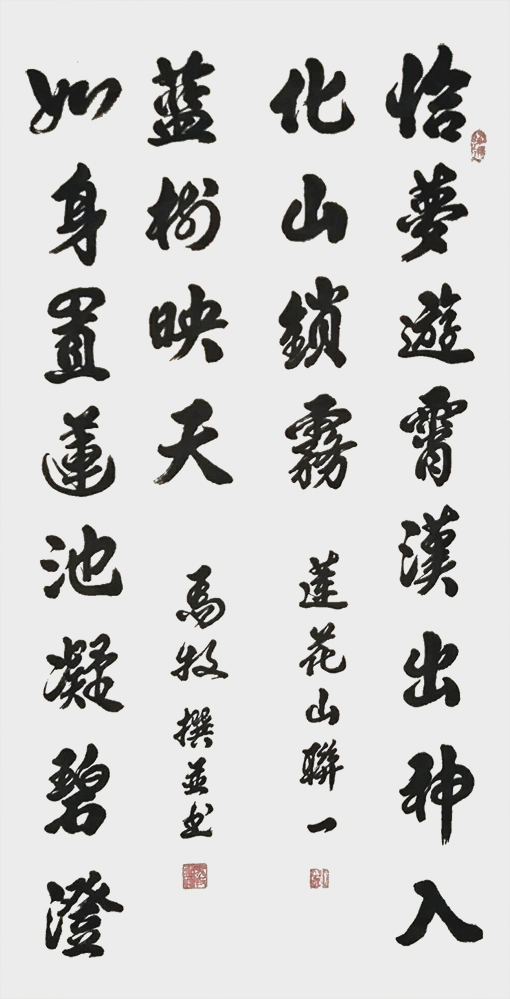 恰夢遊霄漢出神入
化山鎖霧
蓮花山聯一
如身置蓮池凝碧澄
藍樹映天
馬牧撰並書